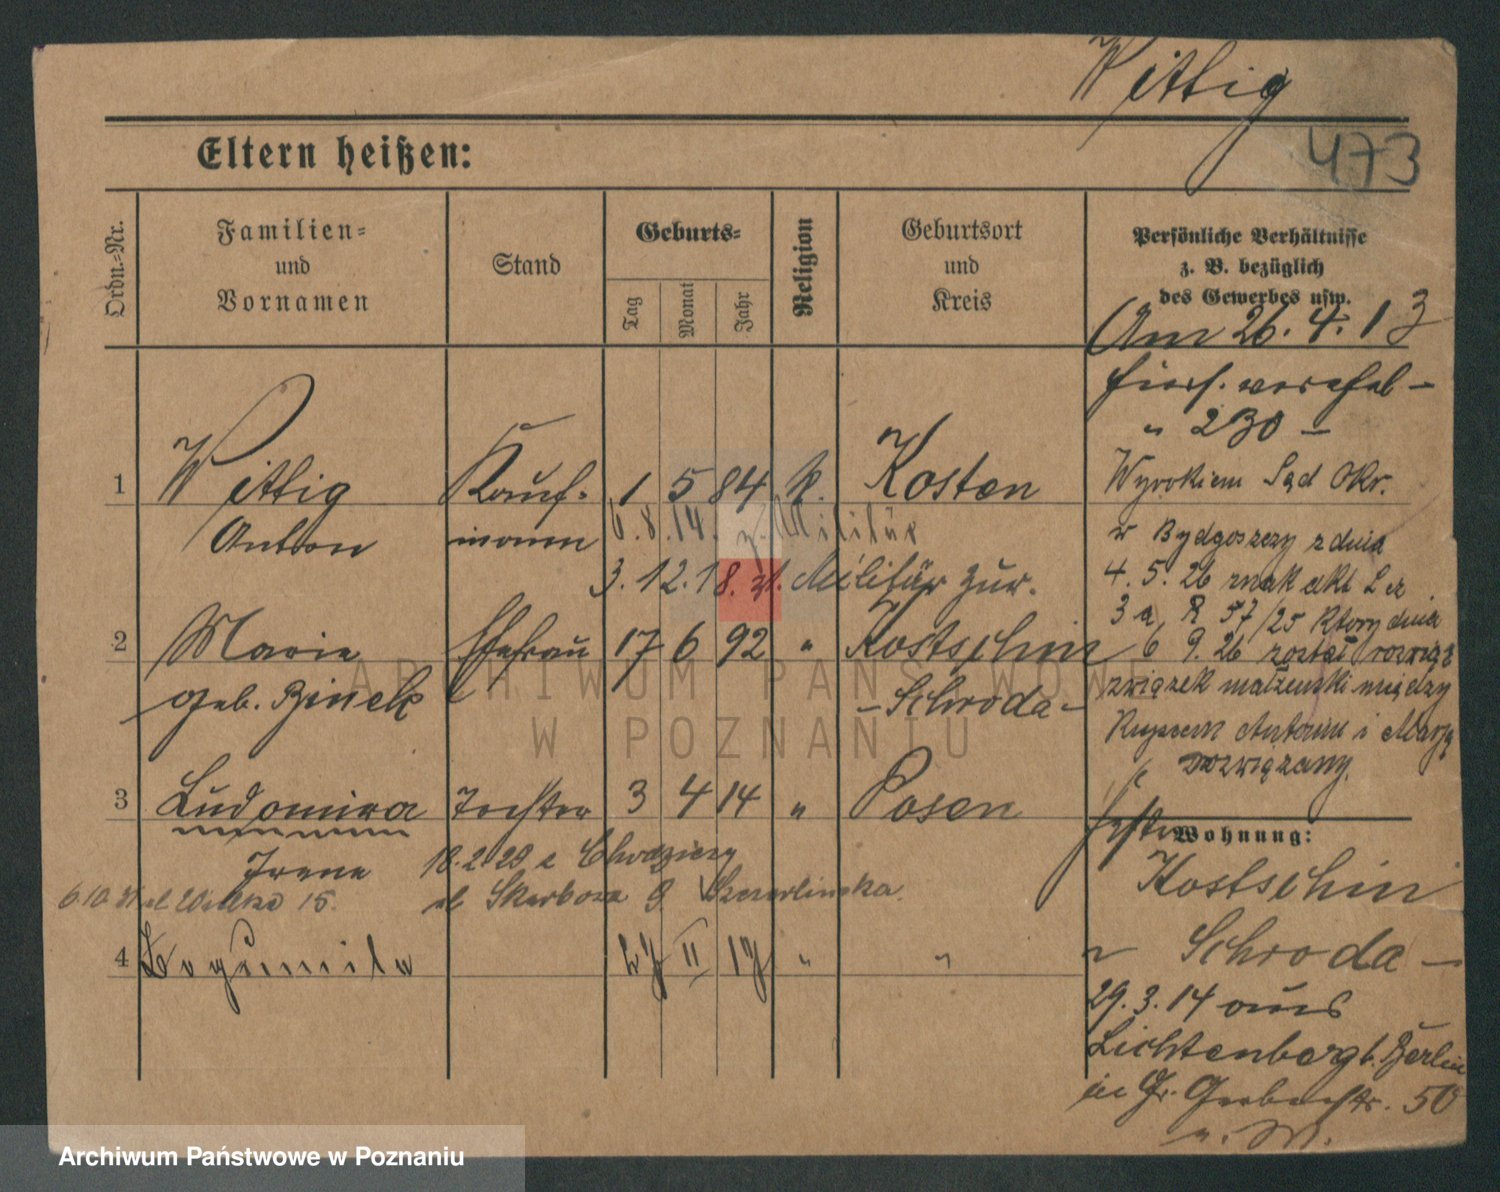 Wittig
473
Eltern heißen:
Ordn.-Nr.
Familien- und Vornamen
Stand
Geburts-
Tag
Monat
Jahr
Religion
Geburtsort und Kreis
Persönliche Verhältnisse
z. B. bezüglich
des Gewerbes usw.
Am 26. 4. 13
" 230 –
1 Wittig Kauf- 1 5 84 k. Kosten
Anton mann 6.8.14. z. Militär
3.12.18. v. Militär zur.
2 Marie Ehefrau 17 6 92 " Kostschin
geb. Binek – Schroda –
3 Ludomira Tochter 3 4 14 " Posen
Irene 18.2.29 z Chodzieży
15. Skarbowa 9
4 Bogumila II " "
Wyrokiem Sąd Okr.
w Bydgoszczy z dnia
4. 5. 26 znak akt L cz.
3 a R 57/25 który dnia
6 9. 26 został rozwiąz
związek małżeński między
Antonim i Marją
rozwiązany.
Wohnung:
Kostschin
Schroda –
29. 3. 14 aus
Lichtenberg b. Berlin
in Gr. Gerberstr. 50
ARCHIWUM PAŃSTWOWE
W POZNANIU
Archiwum Państwowe w Poznaniu